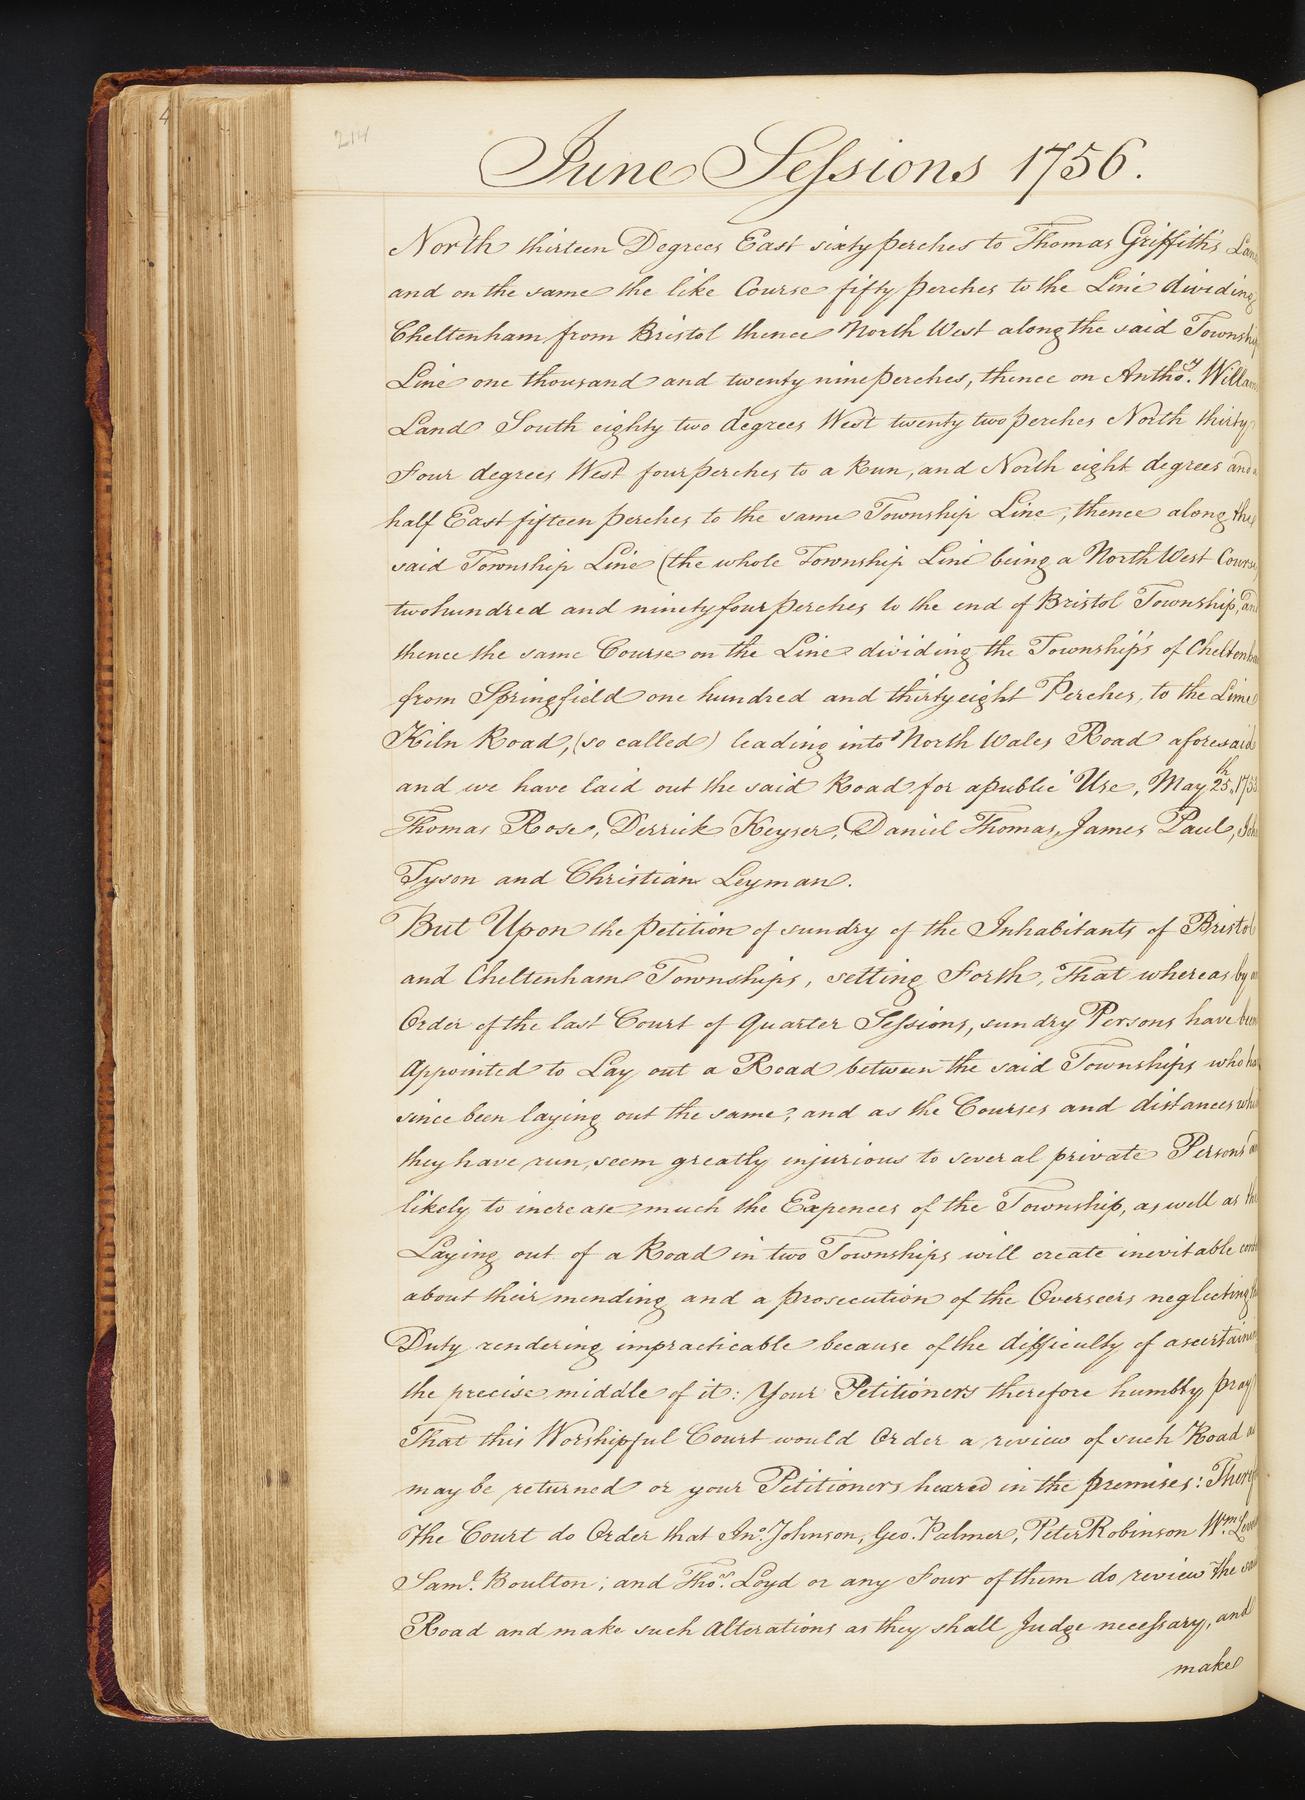 4
214
June Sessions 1756.
North thirteen Degrees East sixty perches to Thomas Griffith's Land
and on the same the like Course fifty perches to the Line dividing
Cheltenham from Bristol thence North West along the said Township
Line one thousand and twenty nine perches, thence on Antho.y
Land South eighty two degrees West twenty two perches North thirty
Four degrees West four perches to a Run, and North eight degrees and a
half East fifteen perches to the same Township Line, thence along the
said Township Line (the whole Township Line being a North West Course
two hundred and ninety four perches to the end of Bristol Township, and
thence the same Course on the Line dividing the Township's of Cheltenham
from Springfield one hundred and thirty eight Perches, to the Lime
Kiln Road, (so called) leading into North Wales Road aforesaid
and we have laid out the said Road for a public Use, May 25th
Thomas Rose, Derrick Keyser, Daniel Thomas, James Paul, John
Tyson and Christian Leyman.
But Upon the petition of sundry of the Inhabitants of Bristol
and Cheltenham Townships, setting Forth, That whereas by an
Order of the last Court of Quarter Sessions, sundry Persons have been
Appointed to Lay out a Road between the said Townships who ha
since been laying out the same, and as the Courses and distances whi
they have run, seem greatly injurious to several private Persons a
likely to increase much the Expences of the Township, as well as the
Laying out of a Road in two Townships will create inevitable cont
about their mending and a prosecution of the Overseers neglecting th
Duty rendering impracticable because of the difficulty of ascertain
the precise middle of it: Your Petitioners therefore humbly pray
That this Worshipful Court would Order a review of such Road as
may be returned or your Petitioners heared in the premises: Theref
the Court do Order that Jno. Johnson, Geo. Palmer, Peter Robinson Wm.
Saml. Boulton, and Thos. Loyd or any Four of them do review the sa
Road and make such Alterations as they shall Judge necessary, and
make